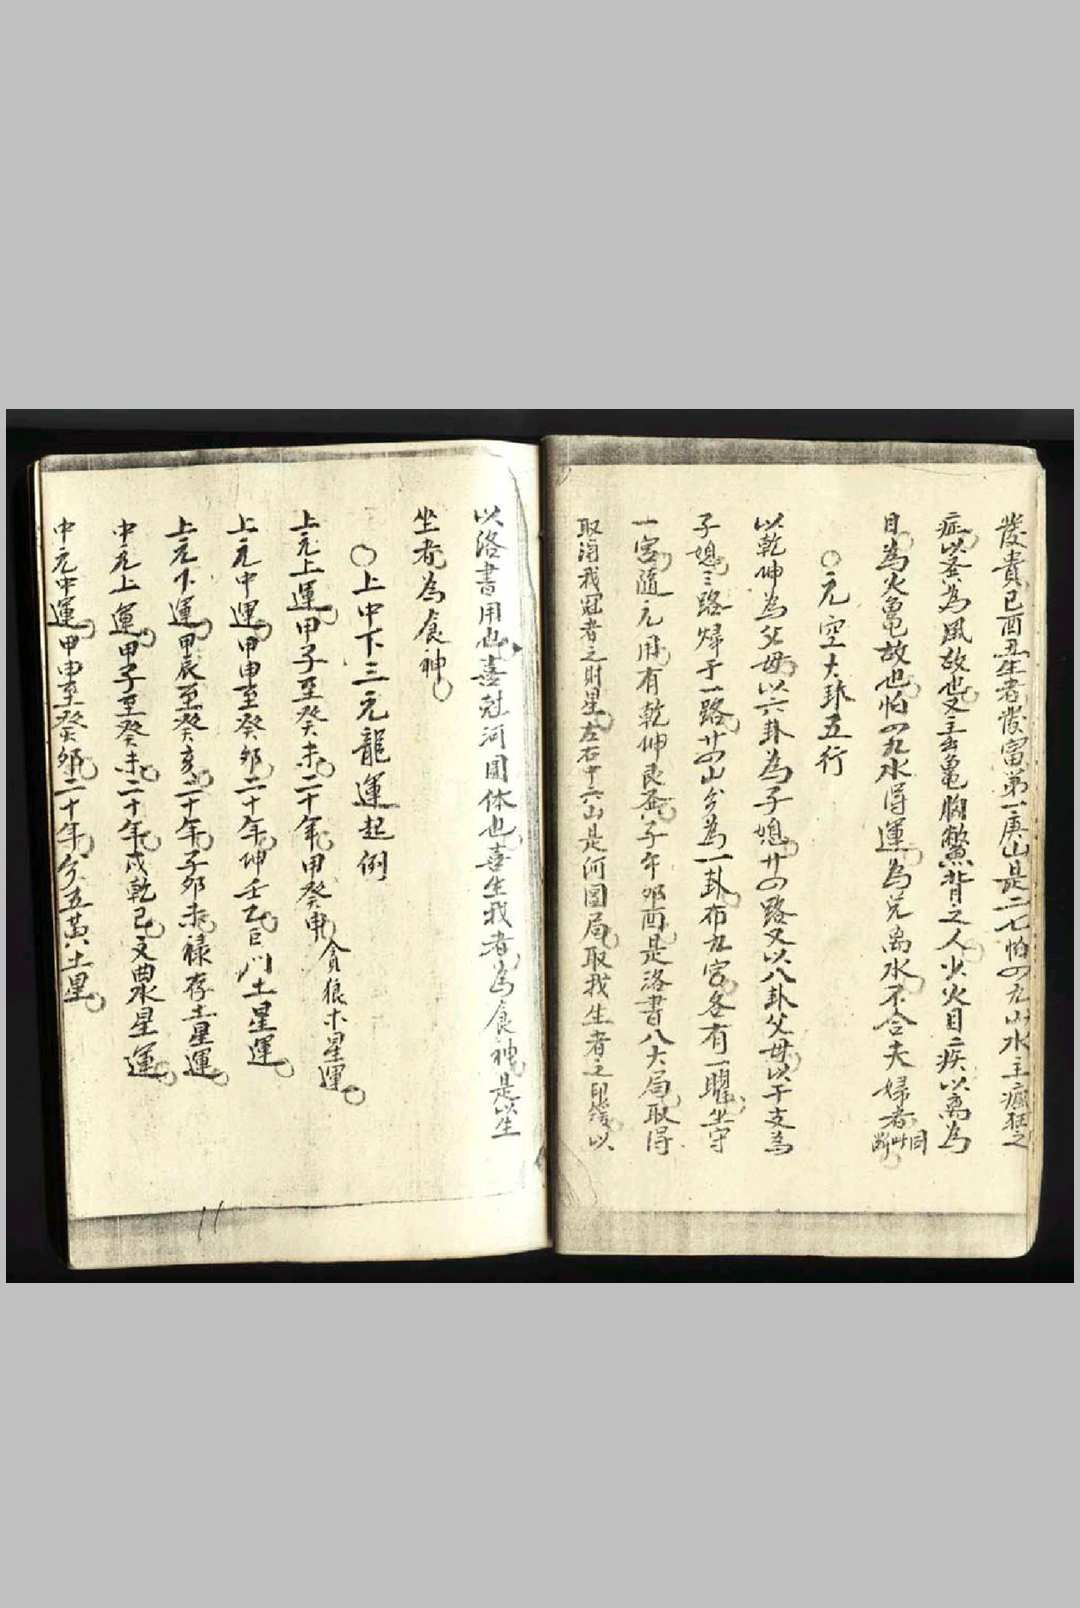 發貴己酉丑生者發富第一庚山是二七怕四九山水主瘋狂之
症以巽為風故也又主玄龜胸鱉背之人少火目二疾以离為
目為火龜故也怕四九水得運為兑离水不合夫婦者同此斷
○元空大卦五行
以乾坤為父母以六卦為子媳廿四路又以八卦父母以干支為
子媳三路歸于一路廿四山分為一卦布九宮各有一曜坐守
一宮隨元用有乾坤艮巽子午夘酉是洛書八大局取得
取洵我冠者之財星左右十六山是河圖局取我生者之以
以洛書用也喜冠河圖体也喜生我者為食神是以生
坐者為食神
○上中下三元龍運起例
上元上運甲子至癸未二十年甲癸申貪狼木星運
上元中運甲申至癸夘二十年坤壬乙巨門土星運
上元下運甲辰至癸亥二十年子夘未禄存土星運
中元上運甲子至癸未二十年戌乾巳文曲水星運
中元中運甲申至癸夘二十年分五黃土星
11